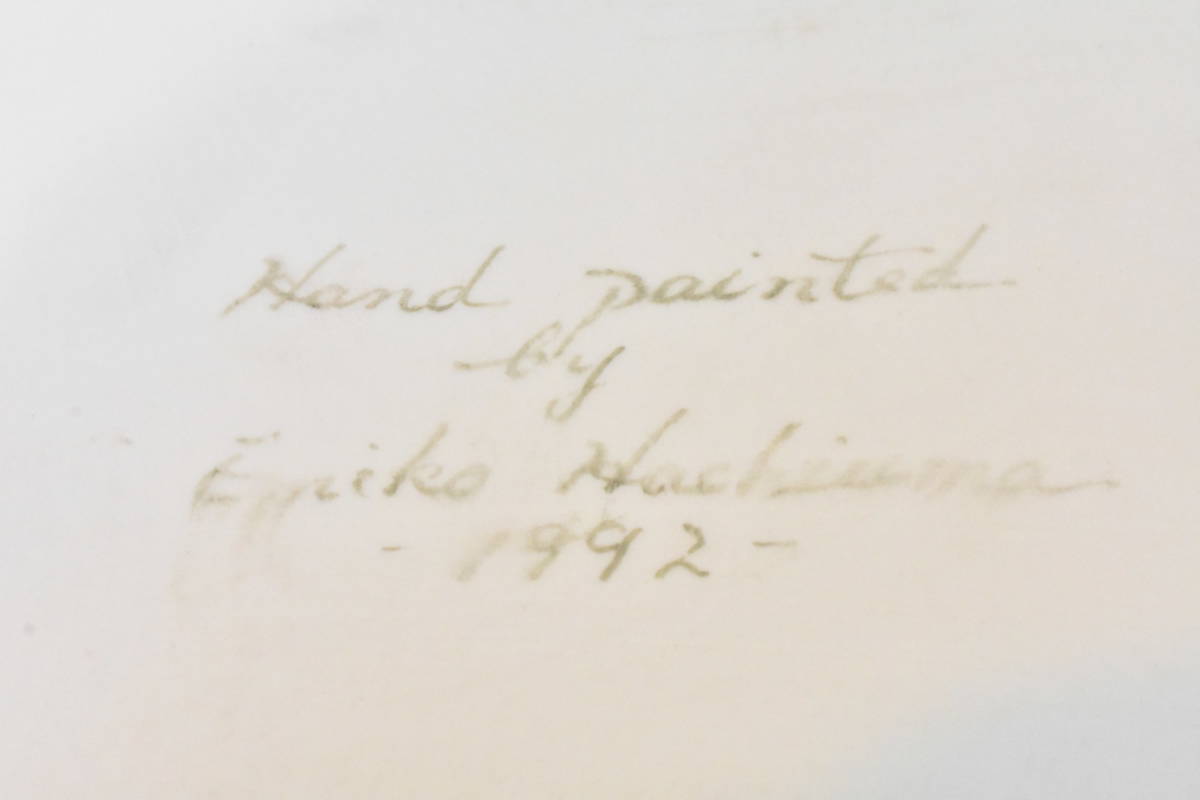 Hand painted
by
Emiko Hachiuma
- 1992 -